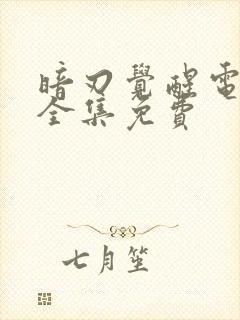 暗刃覺醒電
全集免費
七月笙